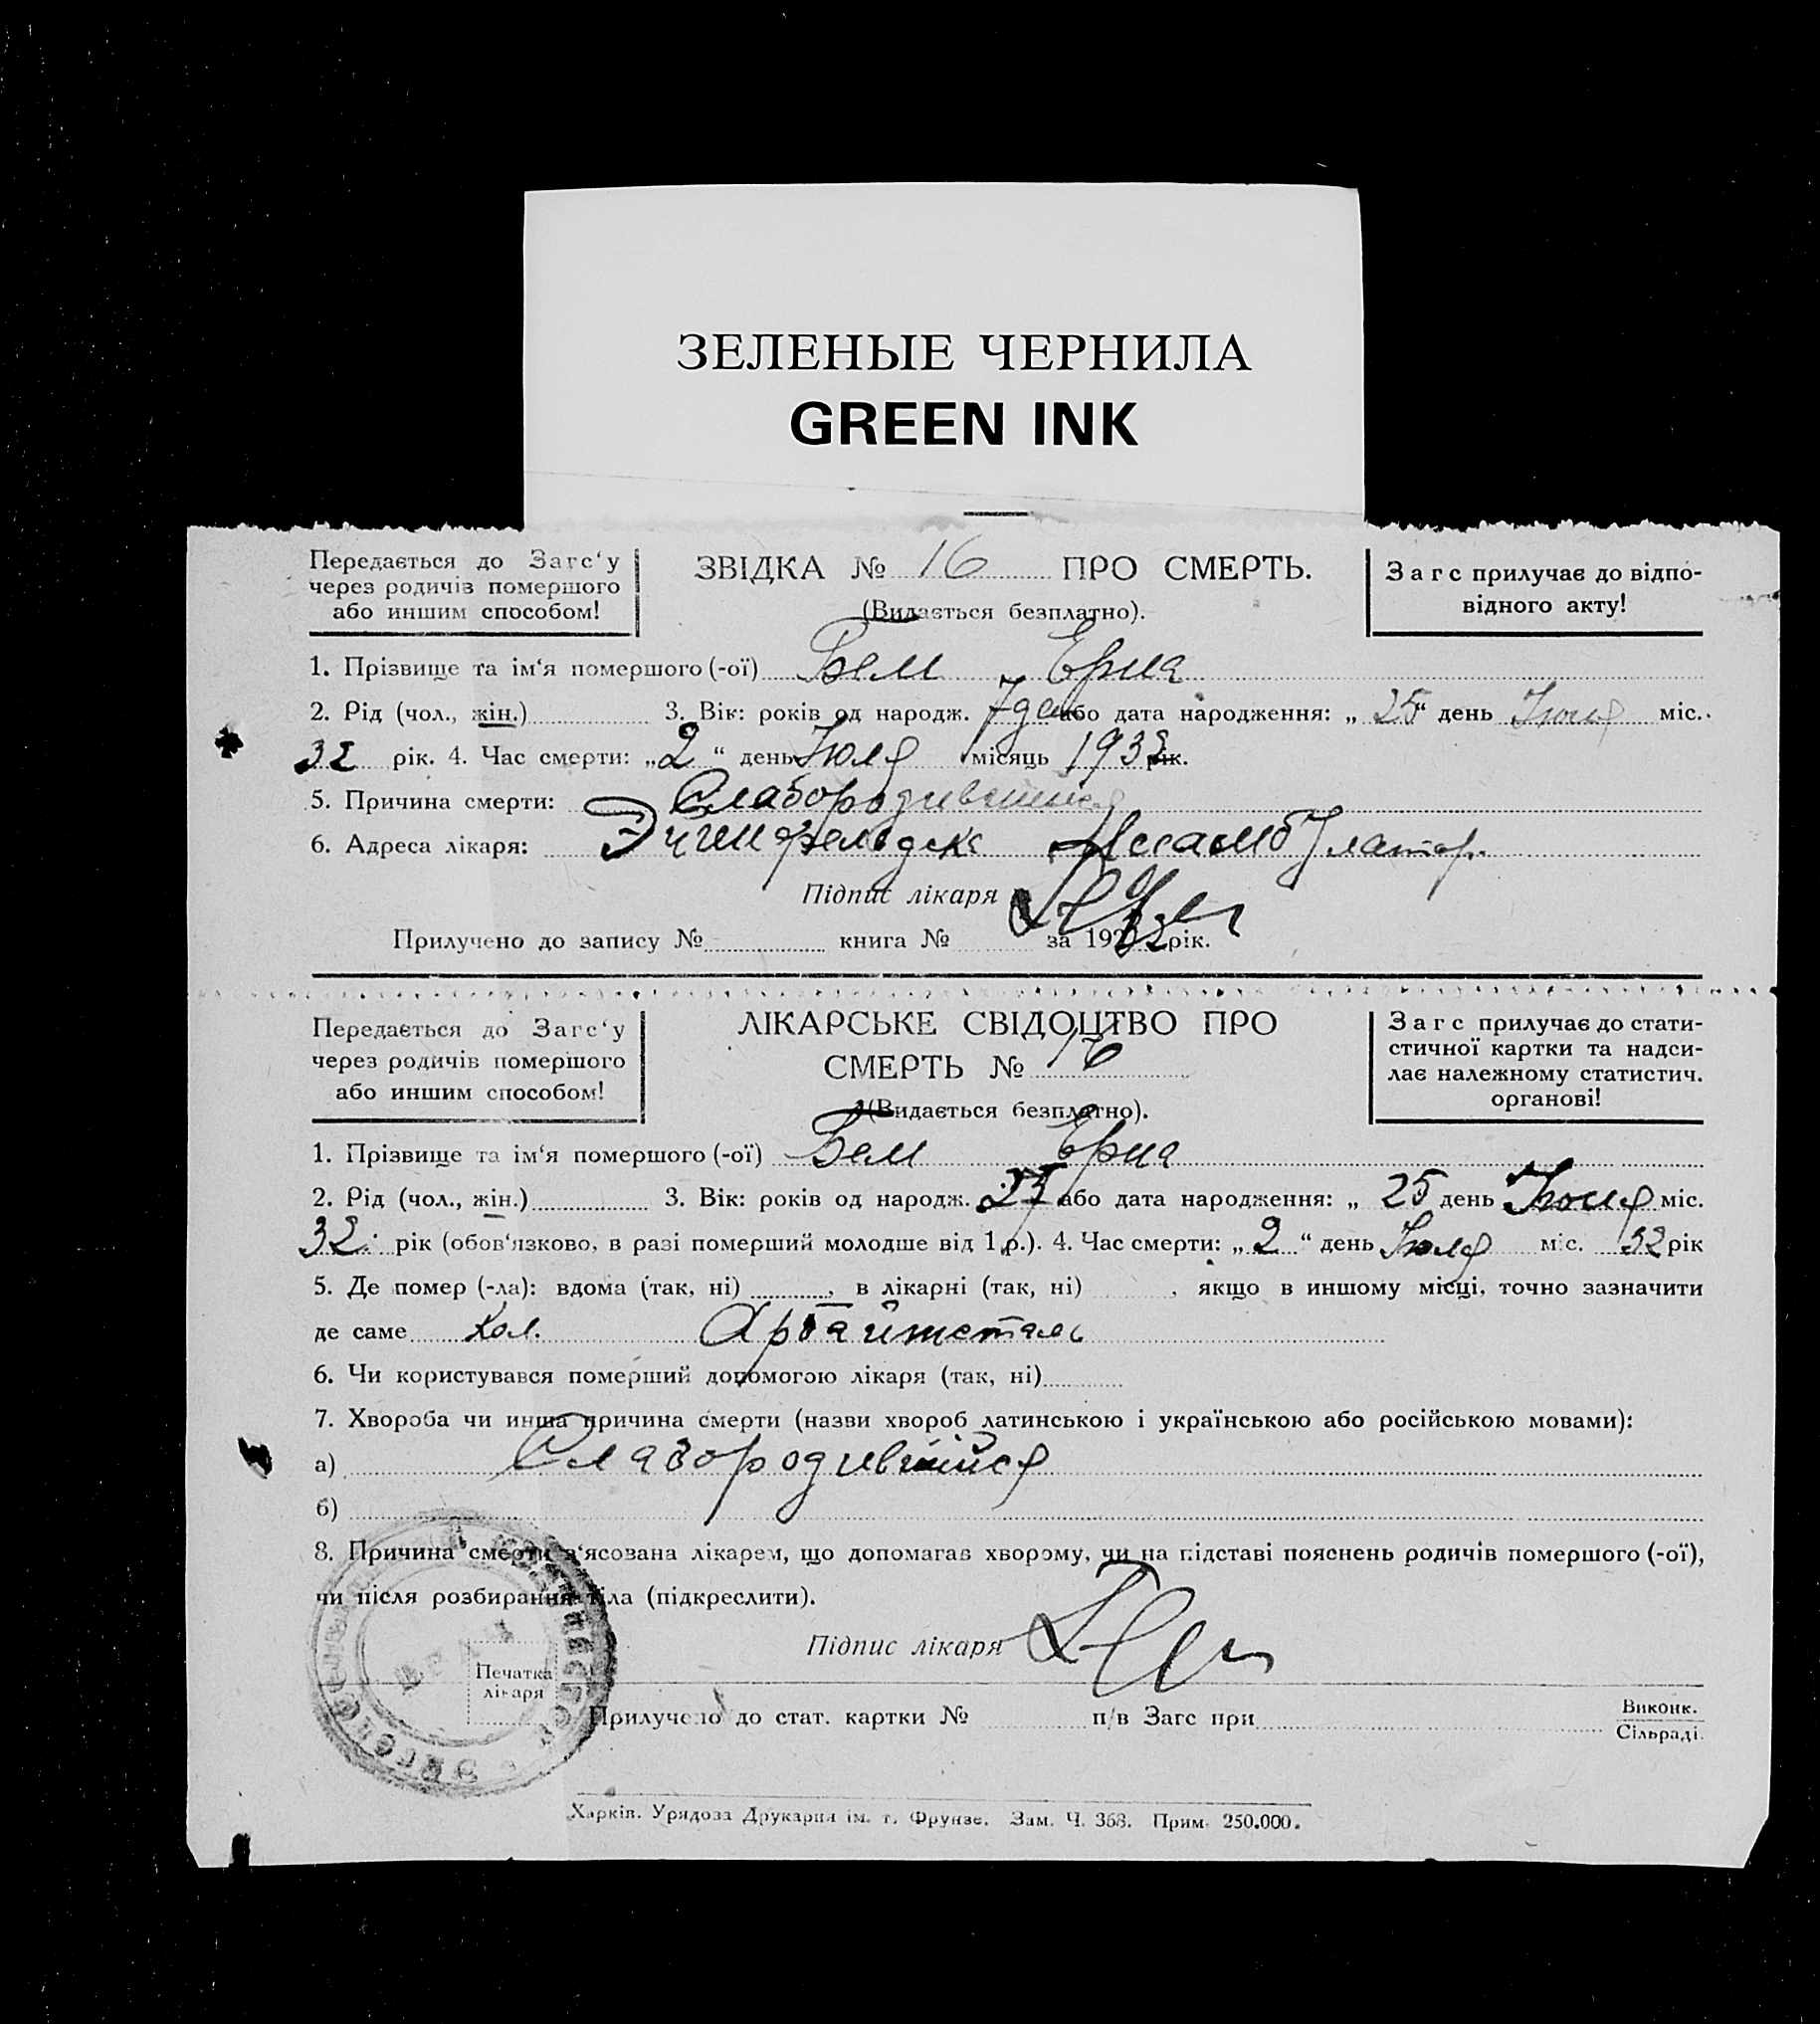 ЗЕЛЕНЫЕ ЧЕРНИЛА
GREEN INK
Передається до Загс‘у
через родичів помершого
або иншим способом!
ЗВІДКА № 16 ПРО СМЕРТЬ.
(Видається безплатно).
Загс прилучає до відпо-
відного акту!
1. Прізвище та ім‘я помершого (-ої) Бем Ерна
2. Рід (чол., жін.) 3. Вік: років од народж. 7 ден або дата народження: „ 25 “ день Июня міс.
32 рік. 4. Час смерти: „ 2 “ день Июля місяць 1932 рік.
5. Причина смерти: Слабородившийся
6. Адреса лікаря:
Підпис лікаря
Прилучено до запису № книга № за 1932 рік.
Передається до Загс‘у
через родичів помершого
або иншим способом!
ЛІКАРСЬКЕ СВІДОЦТВО ПРО
СМЕРТЬ № 16
(Видається безплатно).
Загс прилучає до стати-
стичної картки та надси-
лає належному статистич.
органові!
1. Прізвище та ім‘я помершого (-ої) Бем Ерна
2. Рід (чол., жін.) 3. Вік: років од народж. або дата народження: „ 25 день Июня міс.
32 рік (обов‘язково, в разі померший молодше від 1 р.). 4. Час смерти: „ 2 “ день Июля міс. 32 рік
5. Де помер (-ла): вдома (так, ні) , в лікарні (так, ні) , якщо в иншому місці, точно зазначити
де саме Кол. Арбайтсталь
6. Чи користувався померший допомогою лікаря (так, ні)
7. Хвороба чи инша причина смерти (назви хвороб латинською і українською або російською мовами):
а) Слабородившийся
б)
8. Причина смерти з‘ясована лікарем, що допомагав хворому, чи на підставі пояснень родичів помершого (-ої),
чи після розбирання тіла (підкреслити).
Підпис лікаря
Печатка
лікаря
Прилучено до стат. картки № п/в Загс при Виконк.
Сільраді
Харків. Урядова Друкарня ім. т. Фрунзе. Зам. Ч. 368. Прим. 250.000.